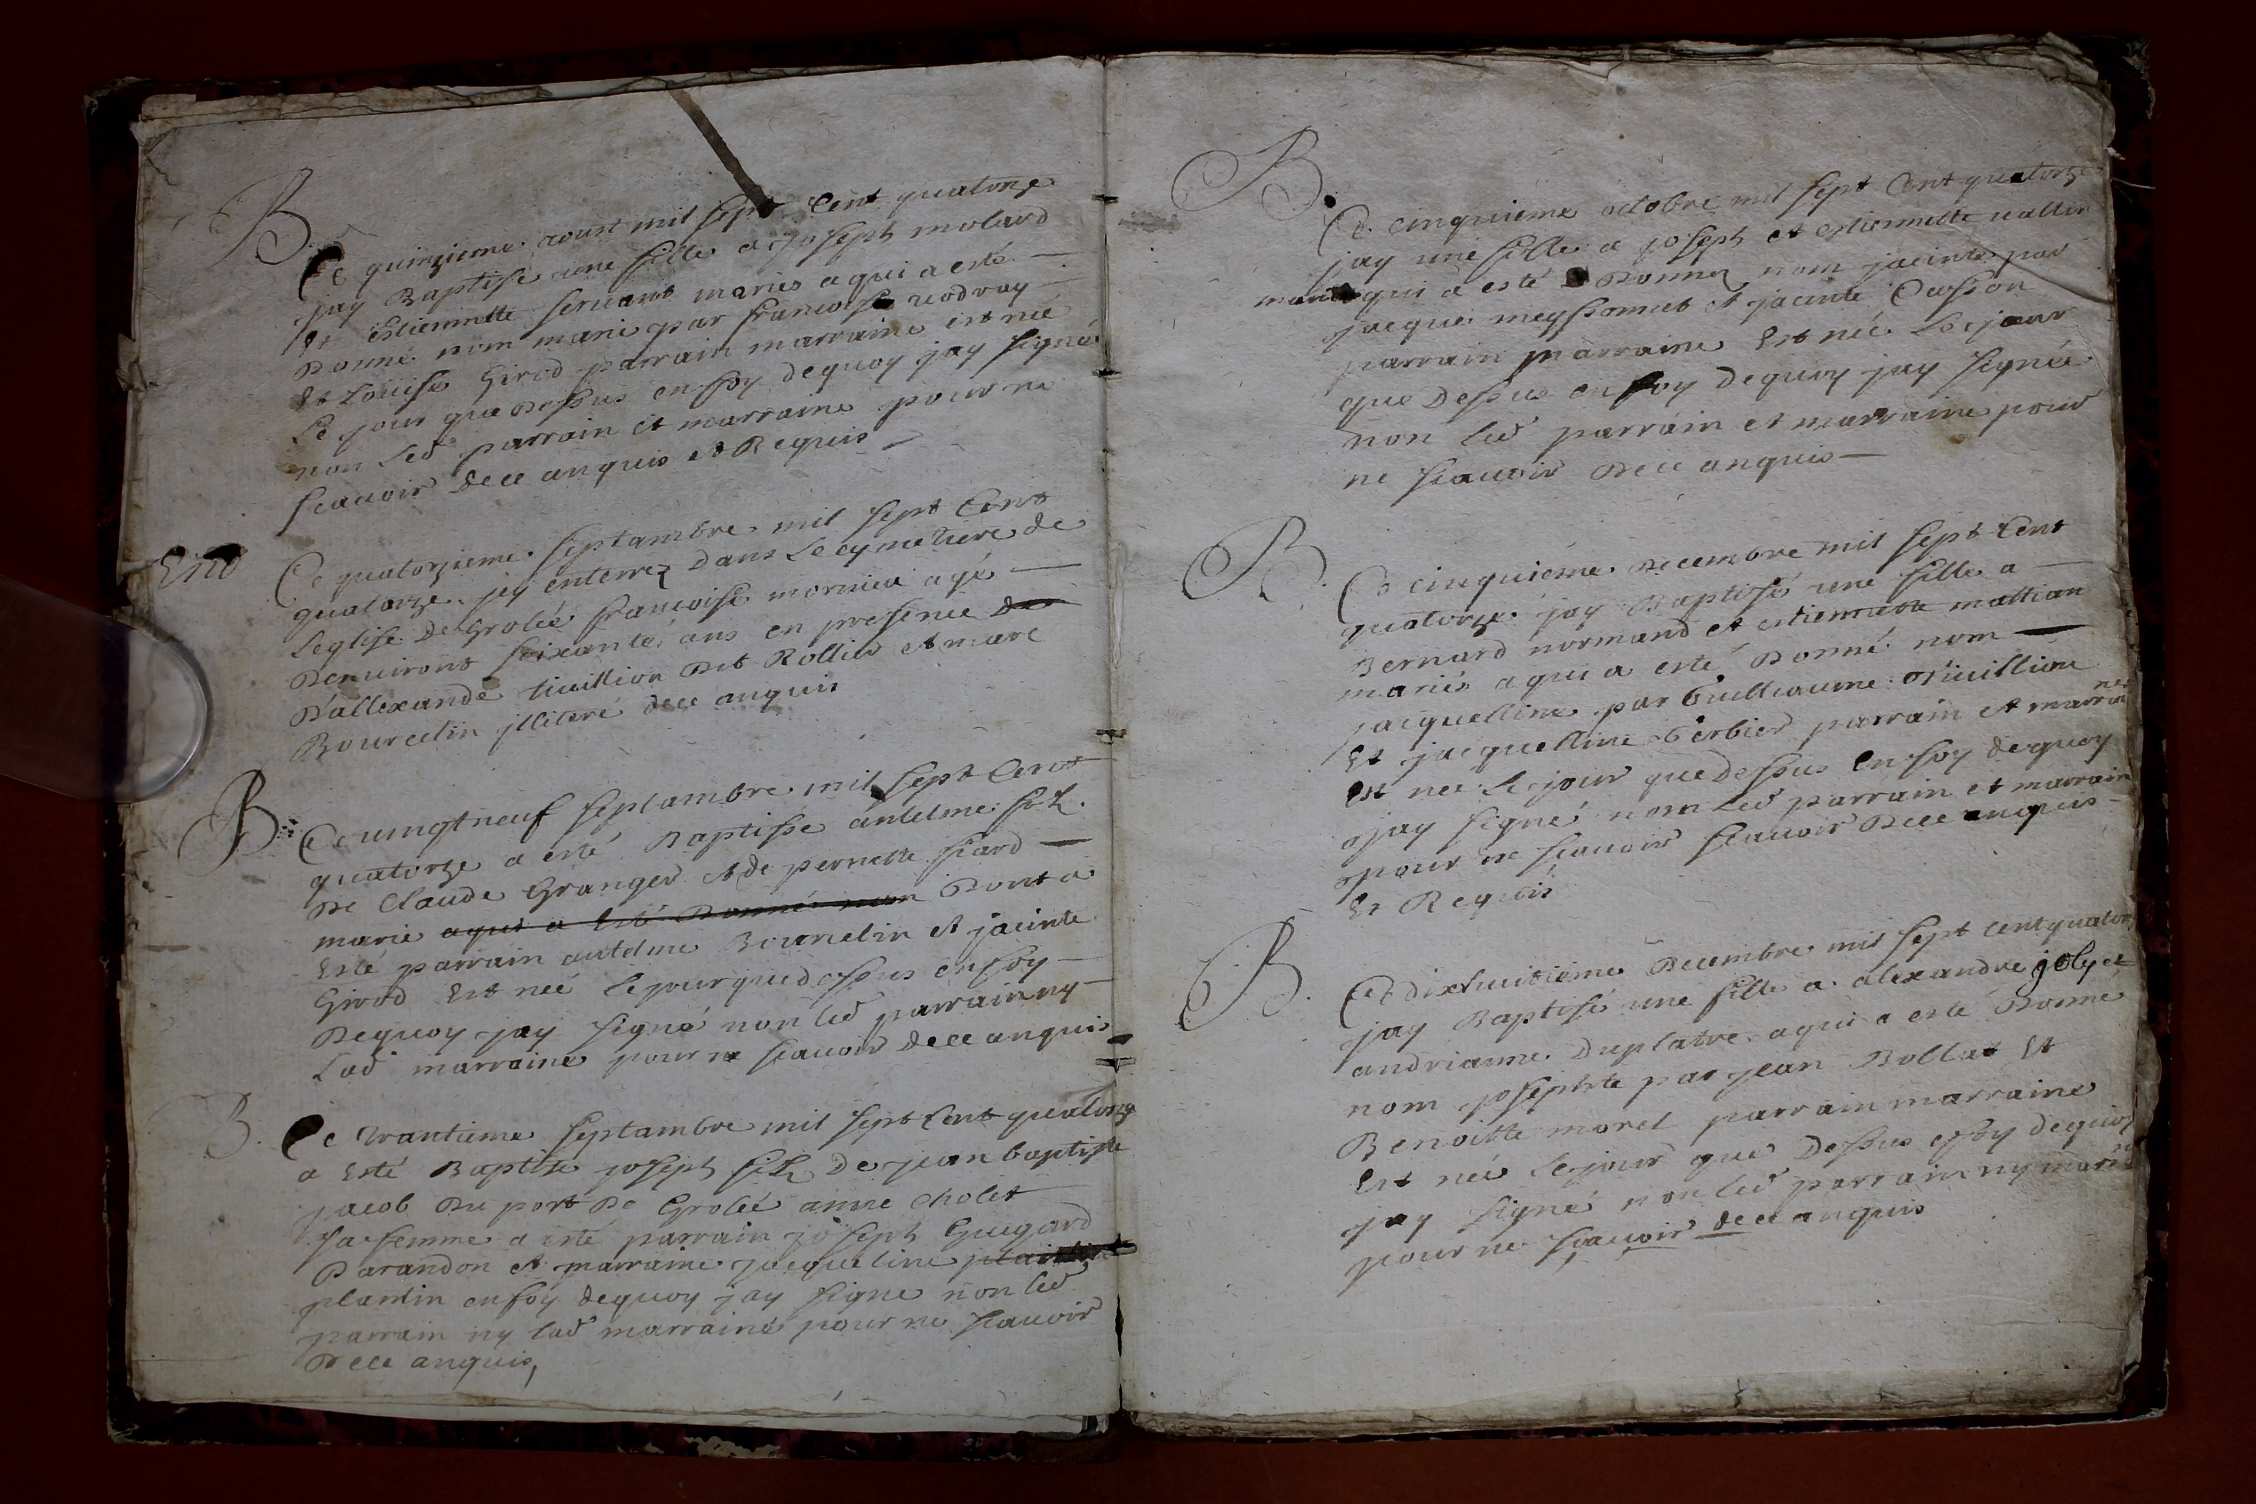 B.
Ce quinzieme aoust mil sept Cent quatorze
jay Baptise une fille a joseph molard
Et Estiennette servant mariés a qui a esté
Donné nom marie par francoise
Et Louise Girod parrain marraine est née
Le jour que Dessus en foy de quoy jay signé
non led parrain et marraine pour ne
scauoir de ce anquis et Requis
End
Ce quatorzieme septambre mil sept Cent
quatorze jey enterrez dans Le cymetiere de
Leglise De Grolée francoise mornieu agé
Denuiront soixante ans en presence
D'allexande tiuillion Dit Rollier et marc
Bourcelin jlliteré de ce anquis
B.
Ce uingtneuf septambre mil sept Cent
quatorze a esté Baptisse antelme filz
De Claude Granger et de pernette siard
marie aqui a Esté Donné nom Dont a
Esté parrain antelme Bournelin et jacinte
Girod Est neé Le jour que dessus en foy
De quoy jay signé non led parrain ny
Lad marraine pour ne scauoir de ce anquis
B.
Ce trantieme septambre mil sept Cent quatorze
a Esté Baptise joseph filz De jean baptiste
jacob Du port De Grolée anne Cholet
sa femme a esté parrain joseph Guegard
Darandon et marraine jacqueline
plantin en foy de quoy jay signe non led
parrain ny lad marraine pour ne scauoir
De ce anquis
B.
Ce cinquieme octobre mil sept Cent quatorze
jay une fille a joseph et estiennette uallin
mariés qui a esté Donnez nom jacinte par
jacque meyssonnet et jacinte Cusson
parrain marraine Est née Le jour
que Dessus en foy De quoy jay signée
non led parrain et marraine pour
ne scauoir De ce anquis
B.
Ce cinquiéme Decembre mil sept Cent
quatorze jay Baptisé une fille a
Bernard normand et estiennette mattian
mariés a qui a esté Donné nom
jacquelline par Guilliaume tiuillion
Et jacquelline Gerbier parrain et marraine
Est nee Le jour que dessus En foy de quoy
jay signé non Led parrain et marrain
pour ne scauoir scauoir De ce anquis
Et Requis
B.
Ce dixhuitiéme Decembre mil sept Cent quator
jay Baptisé une fille a alexandre joly et
andrianne Duplatre a qui a esté Donné
nom josephte par jean Bollat Et
Benoitte morel parrain marraine
Est née Le jour que Dessus en foy de quoy
jay signé non led parrain ny mare
pour ne scauoir de ce anquis